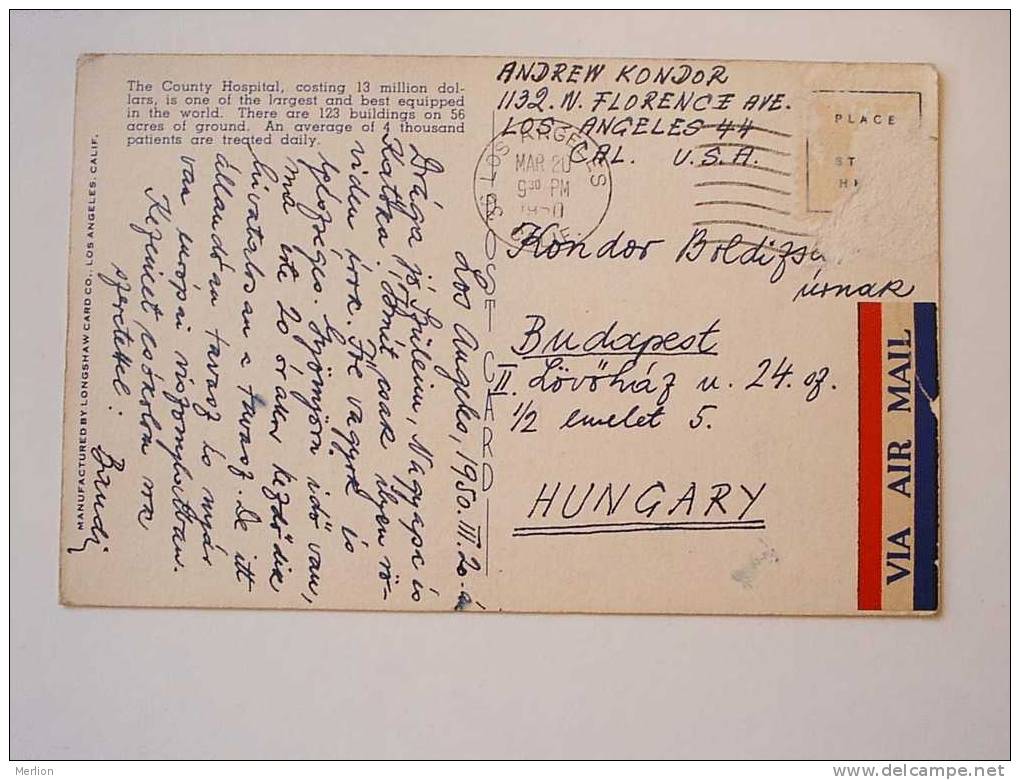 The County Hospital, costing 13 million dol-
lars, is one of the largest and best equipped
in the world. There are 123 buildings on 56
acres of ground. An average of 4 thousand
patients are treated daily.
MANUFACTURED BY LONGSHAW CARD CO., LOS ANGELES, CALIF.
Los Angeles, 1950. III. 20.-án
Drága jó Szüleim, Nagyapa is
Katóka! Amit csak ilyen rö-
viden írok. Jól vagyok is
Gyönyörű idő van,
ma este 20 órakor kezdődik
hivatalosan a tavasz. De itt
állandóan tavasz és nyár
van európai viszonylatban.
Kezeimet csókolom
szeretettel:
Bandi
POST CARD
ANDREW KONDOR
1132. N. FLORENCE AVE.
LOS ANGELES 44
CAL. U.S.A.
LOS ANGELES
MAR 20
9 30 PM
1950
CALIF.
PLACE
ST
HE
Kondor Boldizsár
úrnak
Budapest
II. Lövőház u. 24. sz.
1/2 emelet 5.
HUNGARY
VIA AIR MAIL
Merlion
delcampe.net